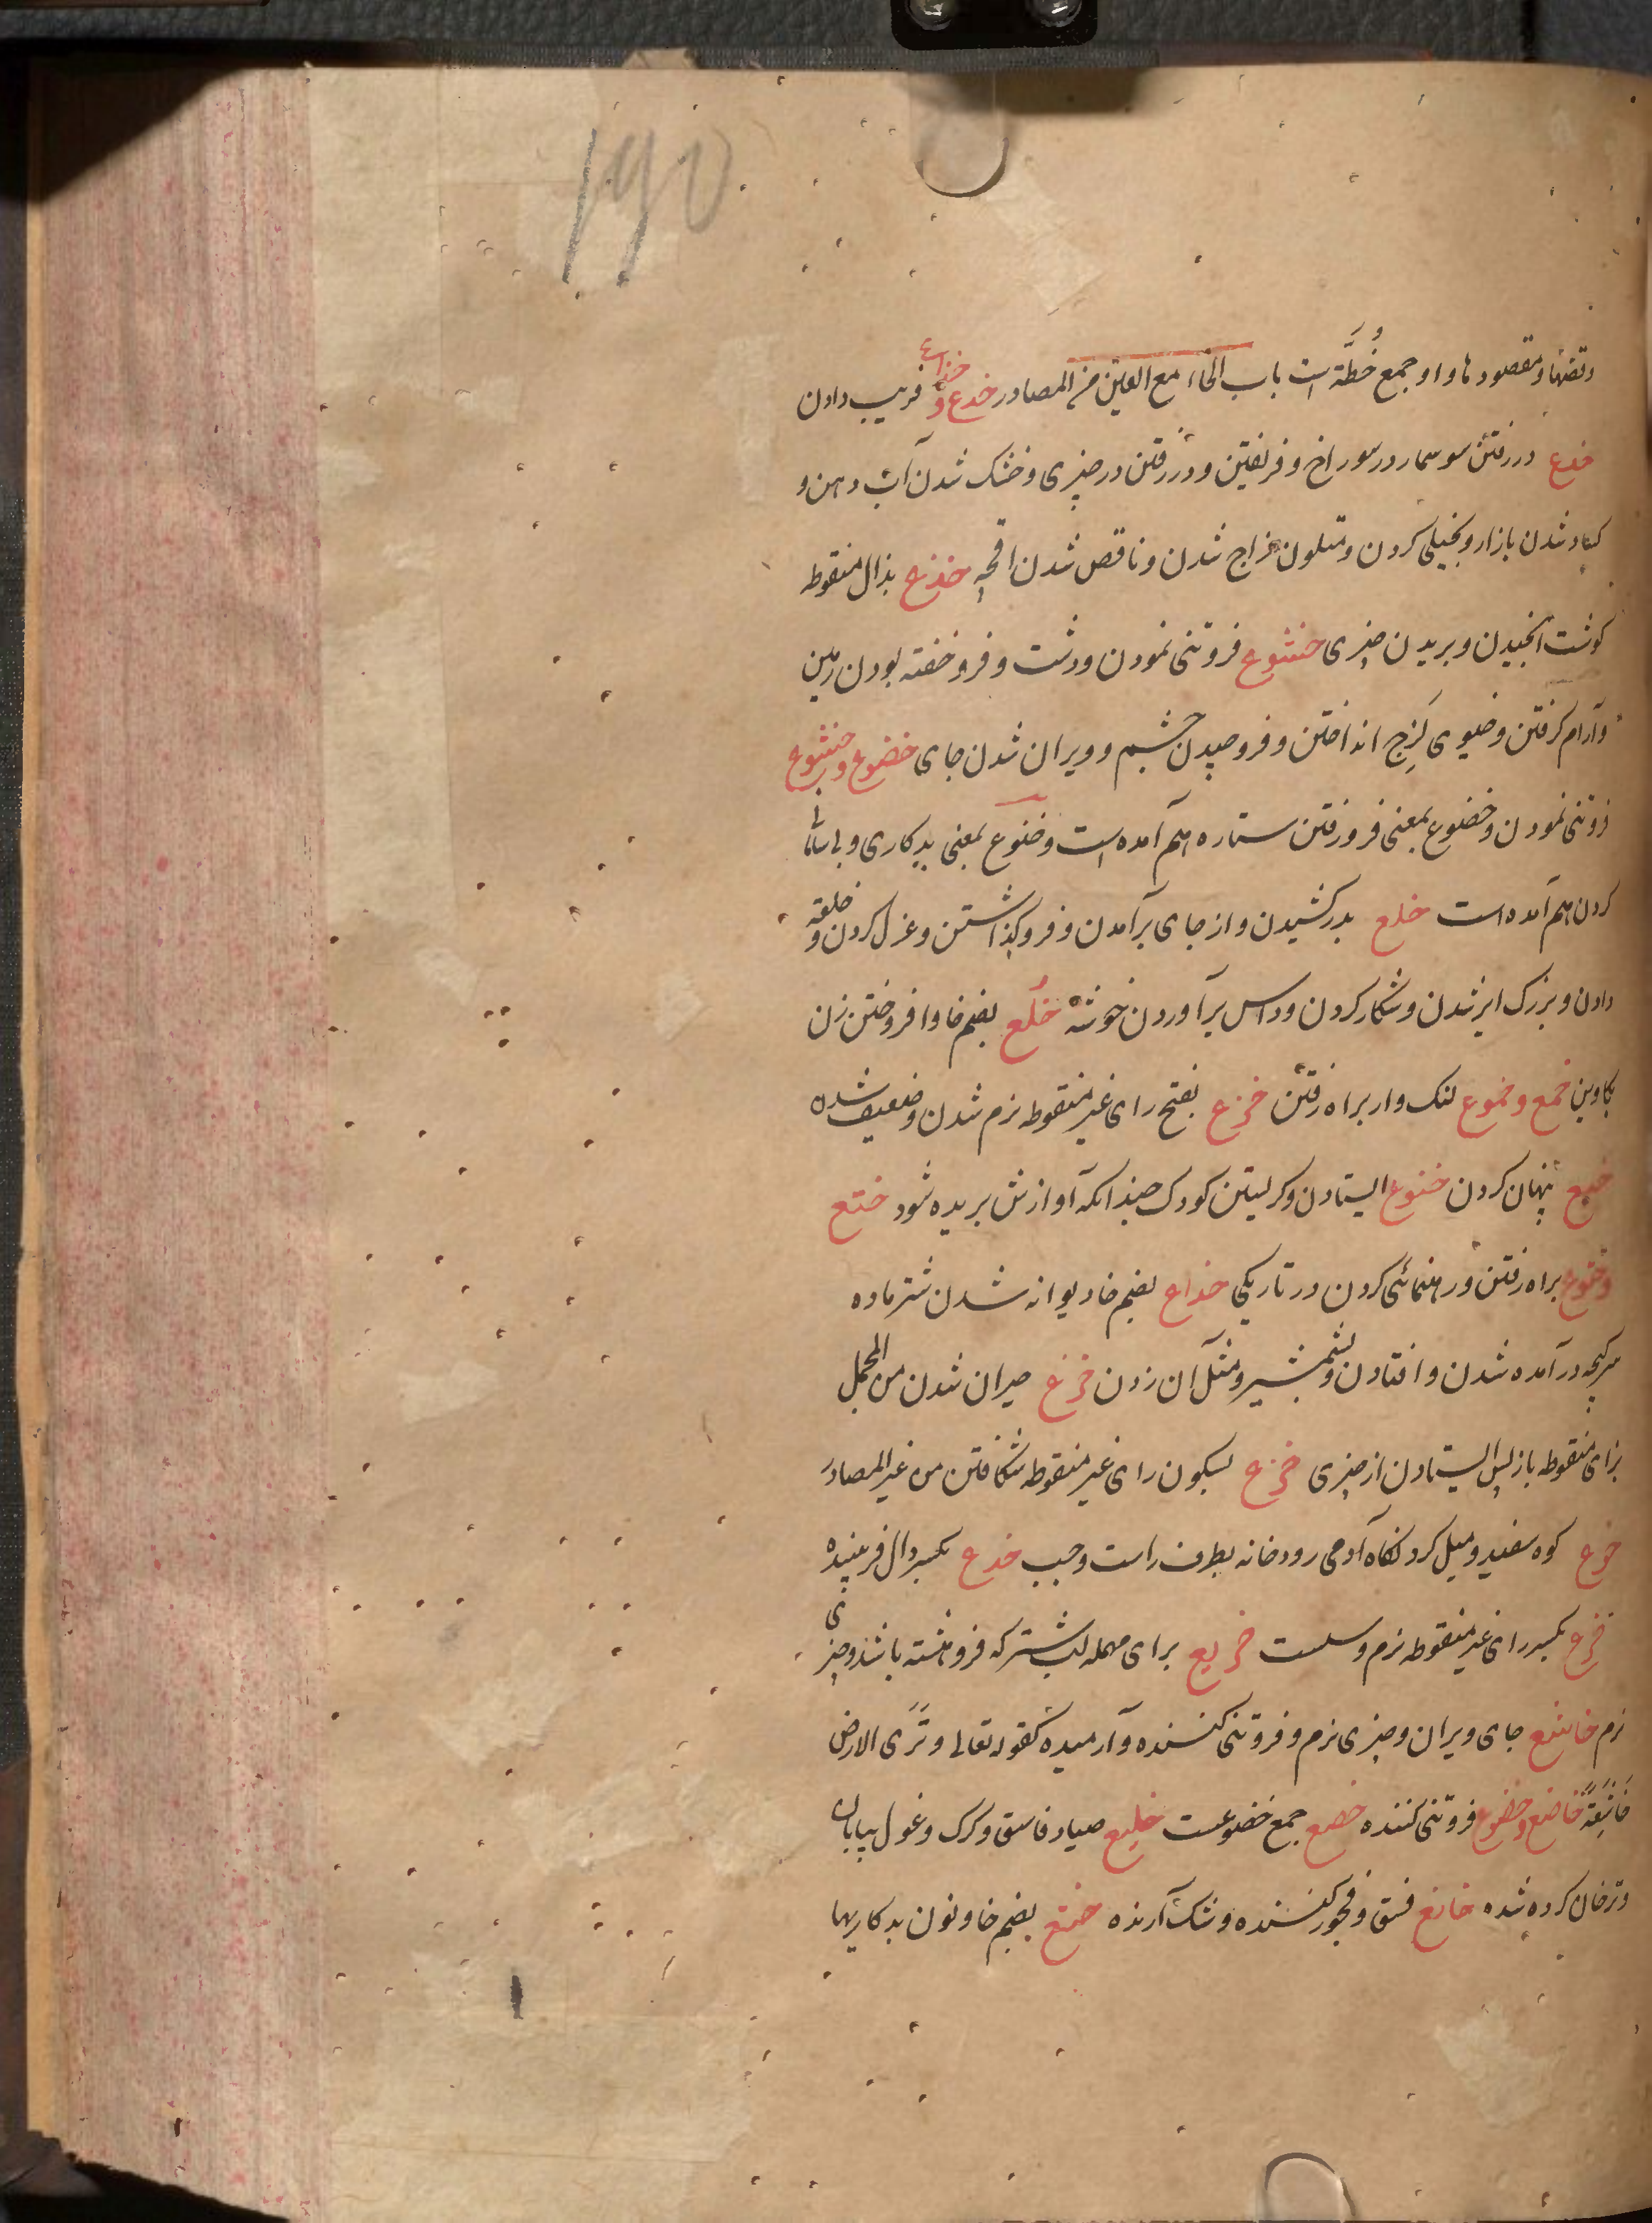 ۱۹۵
وقضها و مقصود ها و او جمع خُطَّة است باب الخاء مع العین من المصادر خدع و خداع فریب دادن
خدع در رفتن سوسمار در سوراخ و فریفتن و در رفتن در چیزی و خشک شدن آب دهن و
کساد شدن بازار و بخیلی کردن و متلون مزاج شدن و ناقص شدن اقچه خذع بذال منقوطه
کوشت انجیدن و بریدن چیزی خشوع فروتنی نمودن و درشت و فرو خفته بودن زمین
و آرام کرفتن و خیوی لَزِج انداختن و فرو چیدن چشم و ویران شدن جای خضوع و خشوع
فروتنی نمودن و خضوع بمعنی فرو رفتن ستاره هم آمده است و خنوع بمعنی بدکاری و
کردن هم آمده است خلع بدر کشیدن و از جای برآمدن و فرو کذاشتن و عزل کردن و خلعة
دادن و بزرک ایر شدن و شکار کردن و داس برآوردن خوشه خُلع بضم خا وا فروختن زن
بکاوین خمع و خموع لنک وار براه رفتن خرع بفتح رای غیر منقوطه نرم شدن و ضعیف شدن
خبع پنهان کردن خبوع ایستادن و کریستن کودک چندانکه آوازش بریده شود ختع
و ختوع براه رفتن و رهنمائی کردن در تاریکی خراع بضم خا دیوانه شدن شتر ماده
در آمده شدن و افتادن و بشمشیر و مثل آن زدن خرع حیران شدن من المجمل
بزای منقوطه باز پس ایستادن از چیزی خرع بسکون رای غیر منقوطه شکافتن من غیر المصادر
خوع کوه سفید و میل کرد نکاه آدمی رودخانه بطرف راست و چپ خدع بکسر دال فریبنده
خرع بکسر رای غیر منقوطه نرم و سست خریع برای مهمله لب شتر که فرو هشته باشد و چیزی
نرم خاشع جای ویران و چیزی نرم و فروتنی کننده و آرمیده کقوله تعالی وَتَرَی الارض
خَاشِعَةً خاضع و خضوع فروتنی کننده خضع جمع خضوعست خلیع صیاد فاسق و کرک و غول بیابان
و ترخان کرده شده خانع فسق و فجور کننده و شک آرنده خنع بضم خا و نون بدکاریها